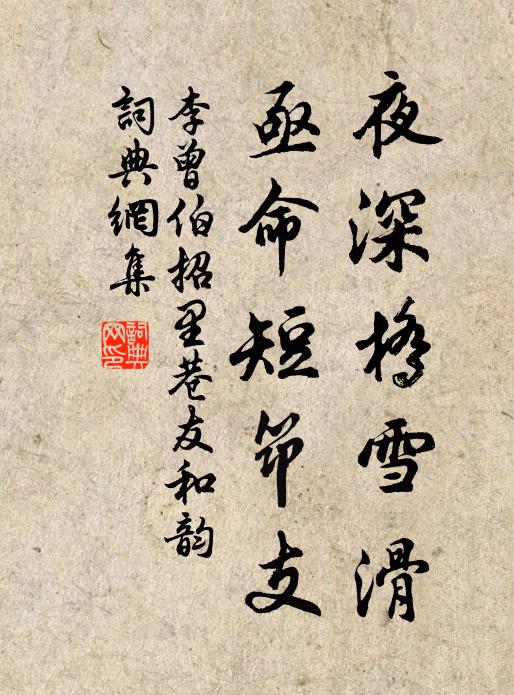 夜深橋雪滑
亟命短筇支
李曾伯招里巷友和韵
詞典網集
詞典
网印